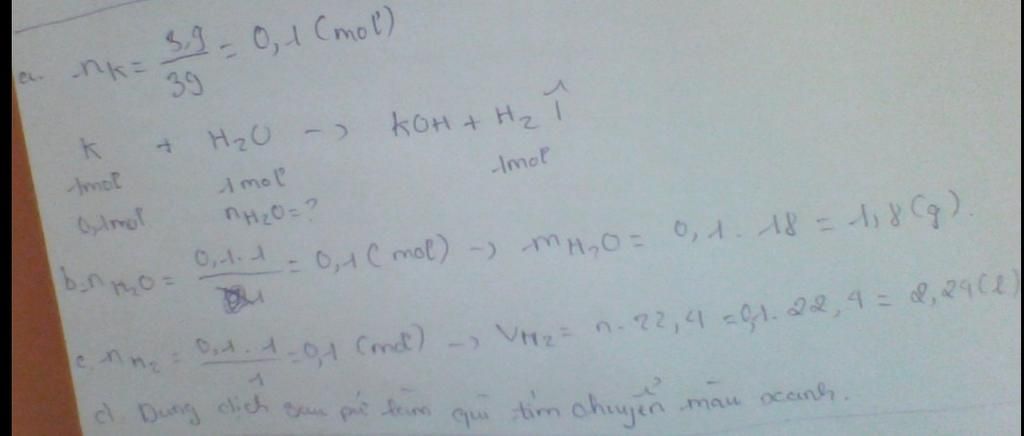 a. nK = 3,9/39 = 0,1 (mol)
K + H2O -> KOH + H2 ↑
1mol 1mol 1mol
0,1mol nH2O = ?
b. nH2O = 0,1.1/1 = 0,1 (mol) -> mH2O = 0,1 . 18 = 1,8 (g).
c. nH2 = 0,1.1/1 = 0,1 (mol) -> VH2 = n. 22,4 = 0,1. 22,4 = 2,24 (l)
d. Dung dịch sau pứ làm quì tím chuyển màu xanh.